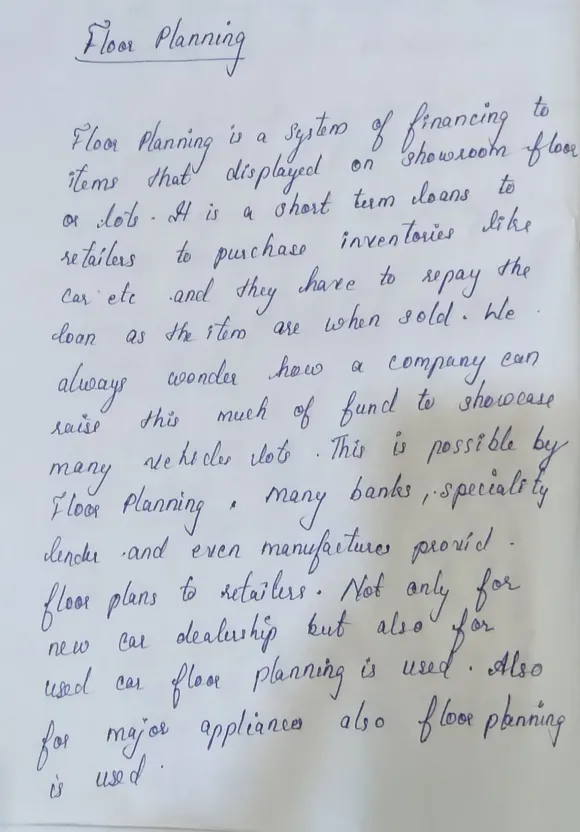 Floor Planning
Floor Planning is a system of financing to
items that displayed on showroom floor
or lots. It is a short term loans to
retailers to purchase inventories like
car etc and they have to repay the
loan as the item are when sold. We
always wonder how a company can
raise this much of fund to showcase
many vehicles lots. This is possible by
Floor Planning. Many banks, speciality
lender and even manufactures provid
floor plans to retailers. Not only for
new car dealership but also for
used car floor planning is used. Also
for major appliances also floor planning
is used.